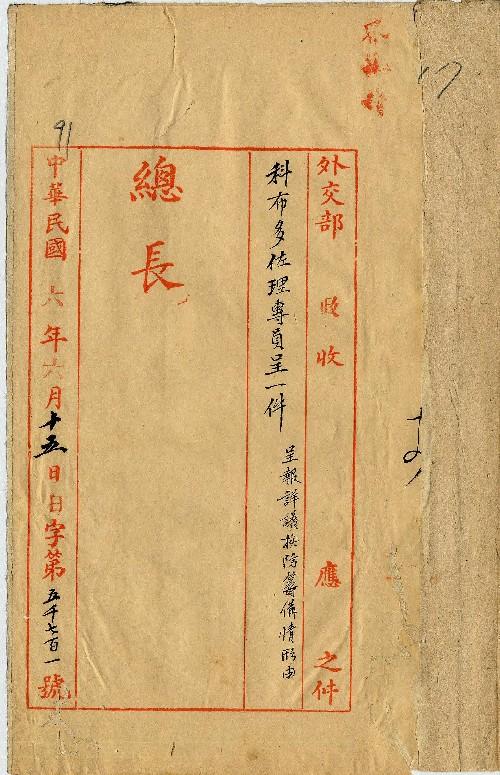 外交部 收收 應 之件
科布多佐理專員呈一件
呈報詳議换防籌備情形由
總長
中華民國六年六月十五日日字第五千七百一號
91